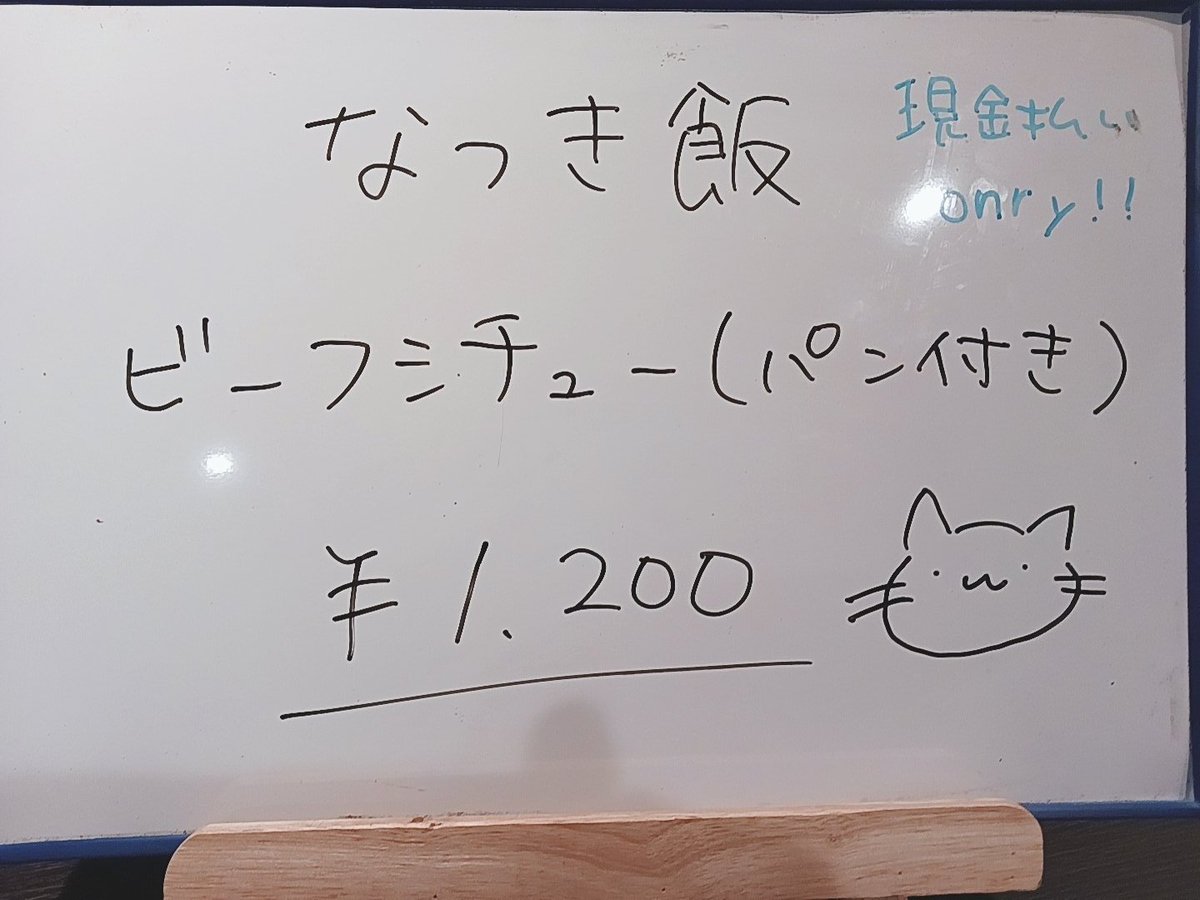 なつき飯
現金払い
onry!!
ビーフシチュー(パン付き)
¥1.200